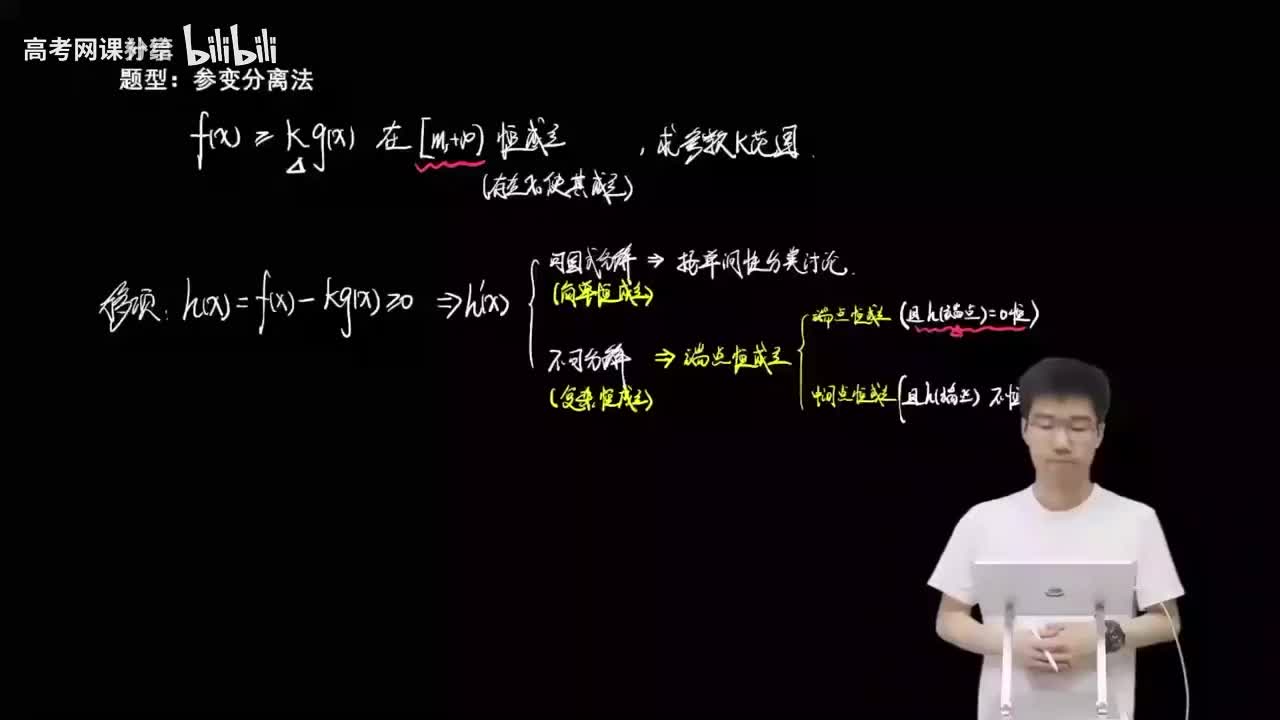 高考网课补给 bilibili
题型：参变分离法
f(x) ≥ kg(x) 在 [m,+∞) 恒成立，求参数k范围.
(存在x使其成立)
可因式分解 ⇒ 按单调性分类讨论.
(简单恒成立)
移项: h(x) = f(x) - kg(x) ≥ 0 ⇒ h'(x)
端点恒成立 (且h(端点)=0恒)
不可分解 ⇒ 端点恒成立
(复杂恒成立)
中间点恒成立 (且h(端点) 不恒